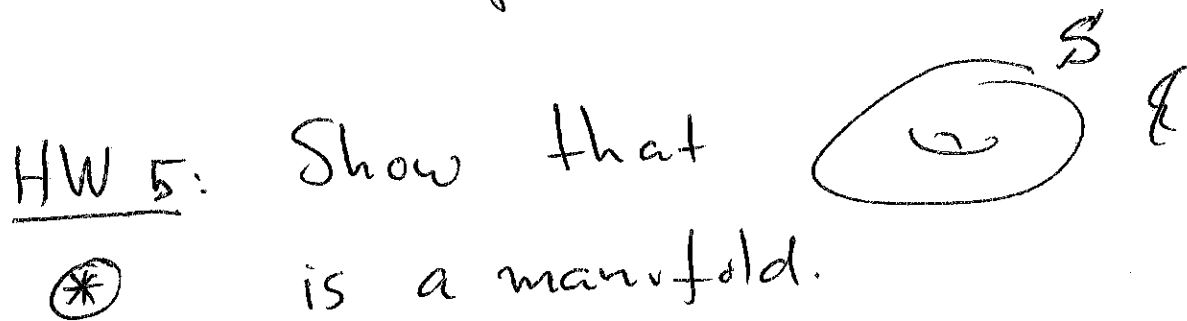 HW 5: Show that S &
is a manifold.